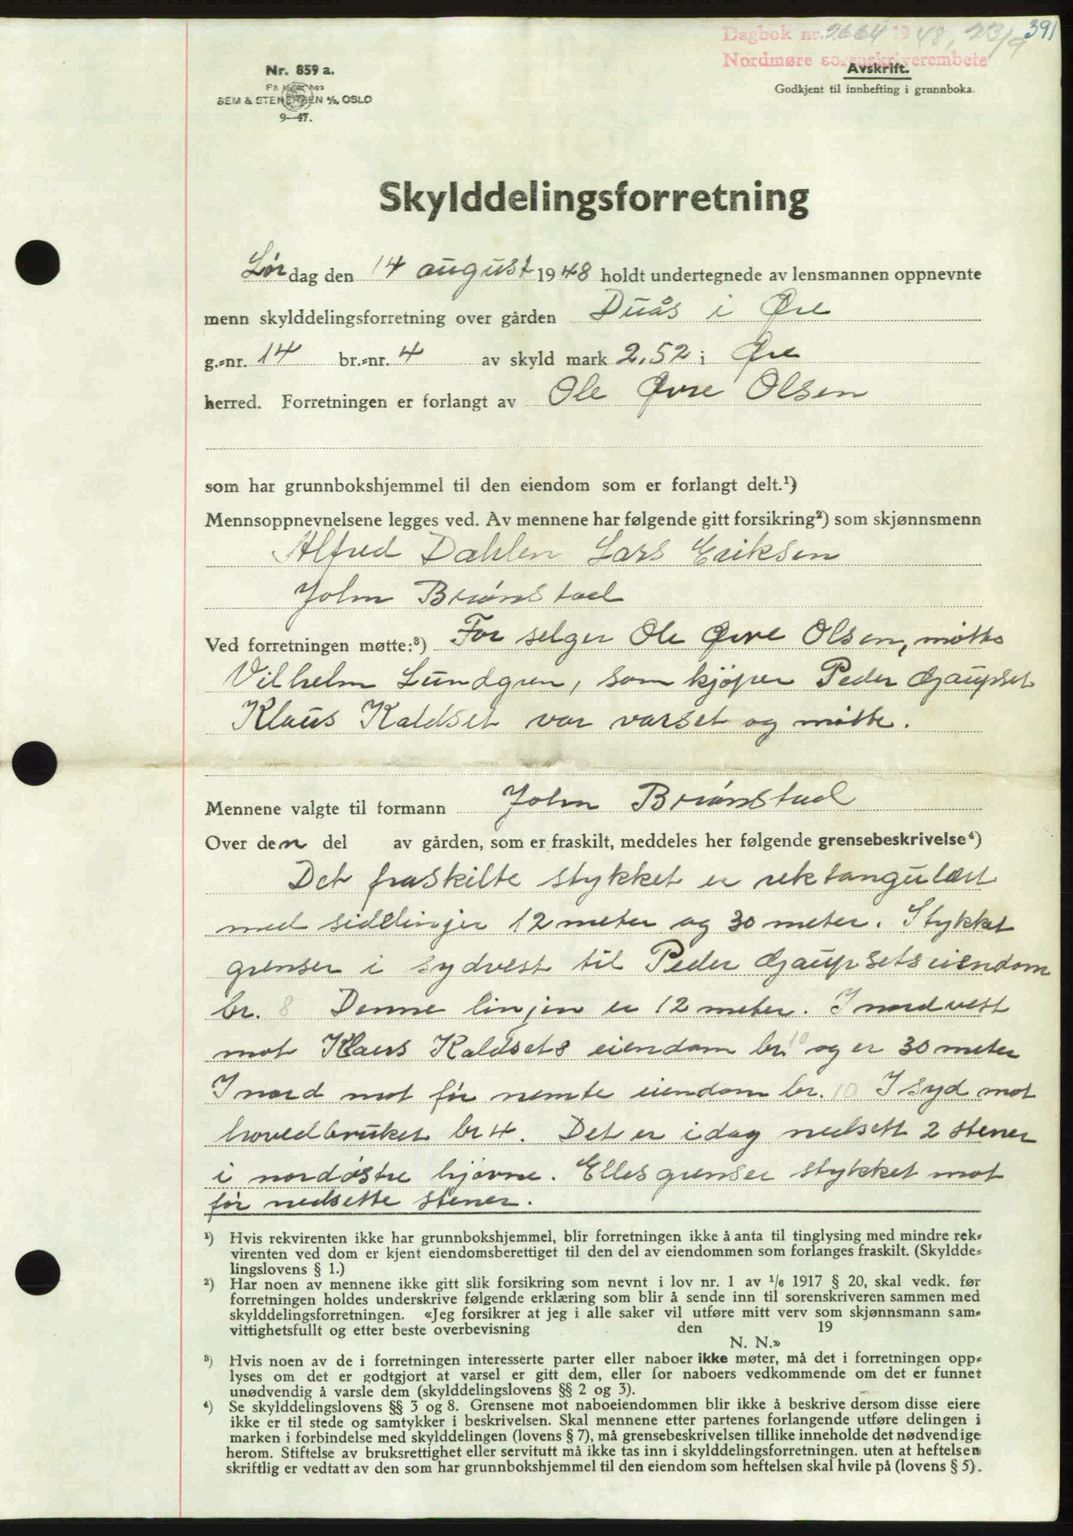 391
Dagbok nr. 2664 1948, 23/9
Nordmøre sorenskriverembete
Nr. 859 a.
Avskrift.
SEM & STENERSEN A/S, OSLO
Godkjent til innhefting i grunnboka.
9—47.
Skylddelingsforretning
Lørdag den 14 august 1948 holdt undertegnede av lensmannen oppnevnte
menn skylddelingsforretning over gården Duås i Øre
g.-nr. 14 br.-nr. 4 av skyld mark 2,52 i Øre
herred. Forretningen er forlangt av Ole Øvre Olsen
som har grunnbokshjemmel til den eiendom som er forlangt delt.¹)
Mennsoppnevnelsene legges ved. Av mennene har følgende gitt forsikring²) som skjønnsmenn
Alfred Dahlen Lars Eriksen
John Brønstad
Ved forretningen møtte:³) For selger Ole Øvre Olsen, møtte
Vilhelm Lundgren, som kjøper Peder Gaupset
Klaus Kaldset var varslet og møtte.
Mennene valgte til formann John Brønstad
Over den del av gården, som er fraskilt, meddeles her følgende grensebeskrivelse⁴)
Det fraskilte stykket er rektangulært
med sidelinjer 12 meter og 30 meter. Stykket
grenser i sydvest til Peder Gaupsets eiendom
br. 8 Denne linjen er 12 meter. I nordvest
mot Klaus Kaldsets eiendom br. 10 og er 30 meter
I nord mot før nemte eiendom br. 10 I syd mot
hovedbruket br 4. Det er idag nedsatt 2 stener
i nordøstre hjørne. Elles grenser stykket mot
før nedsette stener.
¹) Hvis rekvirenten ikke har grunnbokshjemmel, blir forretningen ikke å anta til tinglysing med mindre rek-
virenten ved dom er kjent eiendomsberettiget til den del av eiendommen som forlanges fraskilt. (Skyldde-
lingslovens § 1.)
²) Har noen av mennene ikke gitt slik forsikring som nevnt i lov nr. 1 av ¹/₆ 1917 § 20, skal vedk. før
forretningen holdes underskrive følgende erklæring som blir å sende inn til sorenskriveren sammen med
skylddelingsforretningen. «Jeg forsikrer at jeg i alle saker vil utføre mitt verv som skjønnsmann sam-
vittighetsfullt og etter beste overbevisning den 19
N. N.»
³) Hvis noen av de i forretningen interesserte parter eller naboer ikke møter, må det i forretningen opp-
lyses om det er godtgjort at varsel er gitt dem, eller for naboers vedkommende om det er funnet
unødvendig å varsle dem (skylddelingslovens §§ 2 og 3).
⁴) Se skylddelingslovens §§ 3 og 8. Grensene mot naboeiendommen blir ikke å beskrive dersom disse eiere
ikke er til stede og samtykker i beskrivelsen. Skal mennene etter partenes forlangende utføre delingen i
marken i forbindelse med skylddelingen (lovens § 7), må grensebeskrivelsen tillike inneholde det nødvendige
herom. Stiftelse av bruksrettighet eller servitutt må ikke tas inn i skylddelingsforretningen, uten at heftelsen
skriftlig er vedtatt av den som har grunnbokshjemmel til den eiendom som heftelsen skal hvile på (lovens § 5).